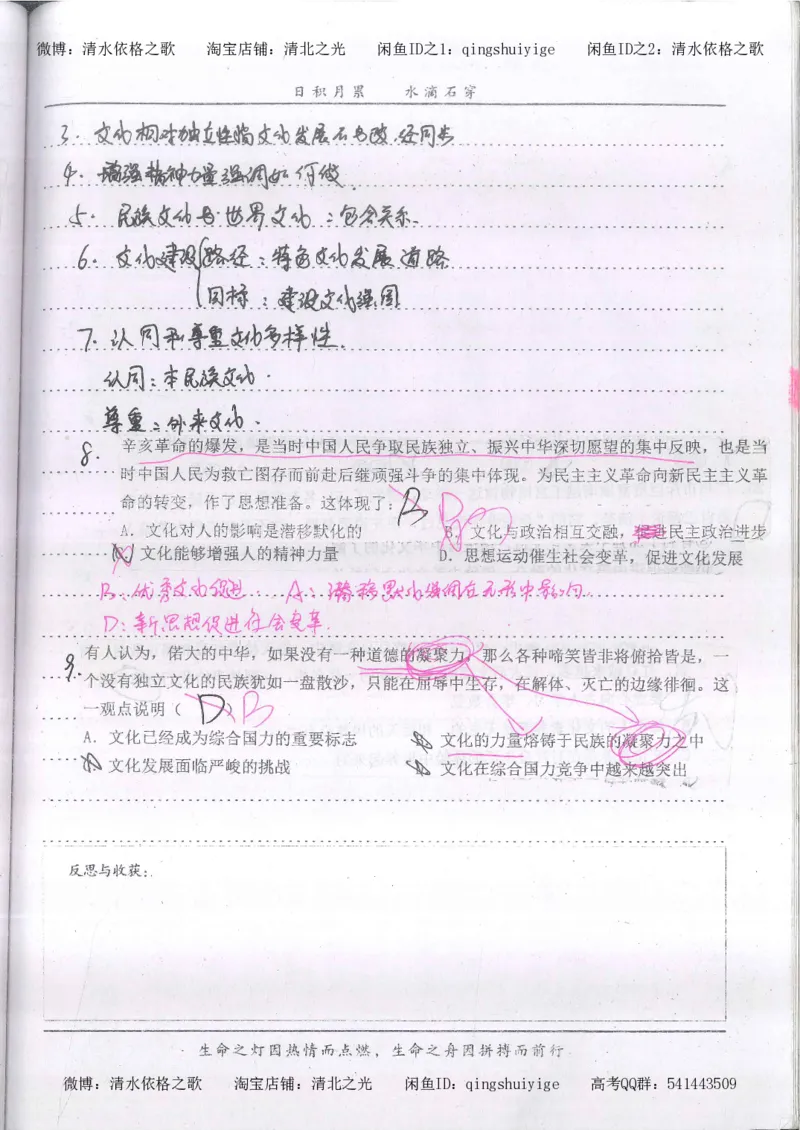 微博：清水依格之歌 淘宝店铺：清北之光 闲鱼ID之1：qingshuiyige 闲鱼ID之2：清水依格之歌
日积月累 水滴石穿
3. 文化相对独立性指文化发展不与政、经同步
4. 增强精神力量强调如何做.
5. 民族文化与世界文化：包含关系.
6. 文化建设 路径：特色文化发展道路
目标：建设文化强国
7. 认同和尊重文化多样性.
认同：本民族文化.
尊重：外来文化.
8. 辛亥革命的爆发，是当时中国人民争取民族独立、振兴中华深切愿望的集中反映，也是当
时中国人民为救亡图存而前赴后继顽强斗争的集中体现。为民主主义革命向新民主主义革
命的转变，作了思想准备。这体现了： B B
A．文化对人的影响是潜移默化的 B．文化与政治相互交融，促进民主政治进步
文化能够增强人的精神力量 D．思想运动催生社会变革，促进文化发展
B：优秀文化促进 A：潜移默化强调在无形中影响
D：新思想促进社会变革.
9. 有人认为，偌大的中华，如果没有一种道德的凝聚力，那么各种嘲笑皆非将俯拾皆是，一
个没有独立文化的民族犹如一盘散沙，只能在屈辱中生存，在解体、灭亡的边缘徘徊。这
一观点说明（ D ） B
A．文化已经成为综合国力的重要标志 文化的力量熔铸于民族的凝聚力之中
文化发展面临严峻的挑战 文化在综合国力竞争中越来越突出
反思与收获：
生命之灯因热情而点燃，生命之舟因拼搏而前行
微博：清水依格之歌 淘宝店铺：清北之光 闲鱼ID：qingshuiyige 高考QQ群：541443509